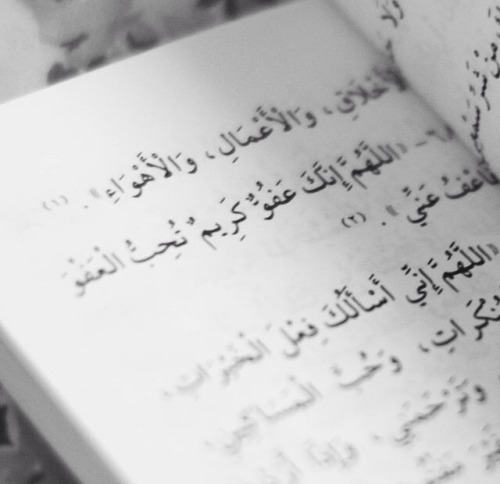 الأَخْلَاقِ، وَالْأَعْمَالِ، وَالْأَهْوَاءِ». (١)
٦٨- «اللَّهُمَّ إِنَّكَ عَفُوٌّ كَرِيمٌ تُحِبُّ الْعَفْوَ
فَاعْفُ عَنِّي». (٢)
«اللَّهُمَّ إِنِّي أَسْأَلُكَ فِعْلَ الْخَيْرَاتِ،
الْمُنْكَرَاتِ، وَحُبَّ الْمَسَاكِينِ،
وَتَرْحَمَنِي، وَإِذَا